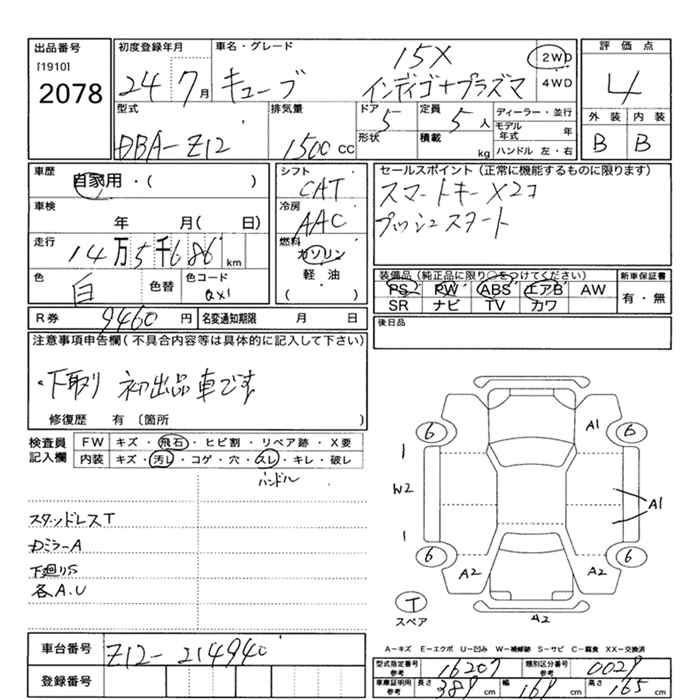 出品番号
[1910]
2078
初度登録年月
24 7月
車名・グレード
15X
キューブ インディゴ+プラズマ
2WD
4WD
評価点
4
外装 内装
B B
型式
DBA-Z12
排気量
1500cc
ドア
5
形状
定員
5人
積載
kg
ディーラー・並行
モデル年式 年
ハンドル 左・右
車歴
自家用・( )
車検
年 月( 日)
走行
14万5千686km
色
白
色替
色コード
QX1
シフト
CAT
冷房
AAC
燃料
ガソリン
軽・油
( )
セールスポイント(正常に機能するものに限ります)
スマートキーX2コ
プッシュスタート
装備品(純正品に限り○をつけてください)
PS PW ABS エアB AW
SR ナビ TV カワ
新車保証書
有・無
R券
9460円
名変通知期限 月 日
後日品
注意事項申告欄(不具合内容等は具体的に記入して下さい)
・下取り 初出品車です
修復歴 有 〔箇所 〕
検査員記入欄
FW キズ・飛石・ヒビ割・リペア跡・X要
内装 キズ・汚レ・コゲ・穴・スレ・キレ・破レ
ハンドル
スタッドレスT
DミラーA
下廻りS
各A.U
6
6
6
6
A1
1
W2
1
A1
A2
A2
A2
T
スペア
A-キズ E-エクボ U-凹み W-補修跡 S-サビ C-腐食 XX-交換済
車台番号
Z12-214940
登録番号
型式指定番号 参考
16207
類別区分番号 参考
0029
車庫証明用 参考
長さ 389cm
幅 169cm
高さ 165cm